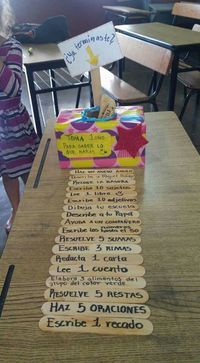 ¿Ya terminaste?
Toma 1 palito
PARA SABER LO
QUE HARÁS
Haz un nuevo amigo
Recoge la basura
Escribe 10 sujetos
Lee 1 libro
Escribe 10 adjetivos
Dibuja tu escuela
Describe a tu Papá
Ayuda a un compañero
Escribe los números hasta el 50
Resuelve 5 sumas
Escribe 3 rimas
Redacta 1 carta
Lee 1 cuento
Elabora 3 alimentos del
grupo del color verde
Resuelve 5 restas
Haz 5 oraciones
Escribe 1 recado